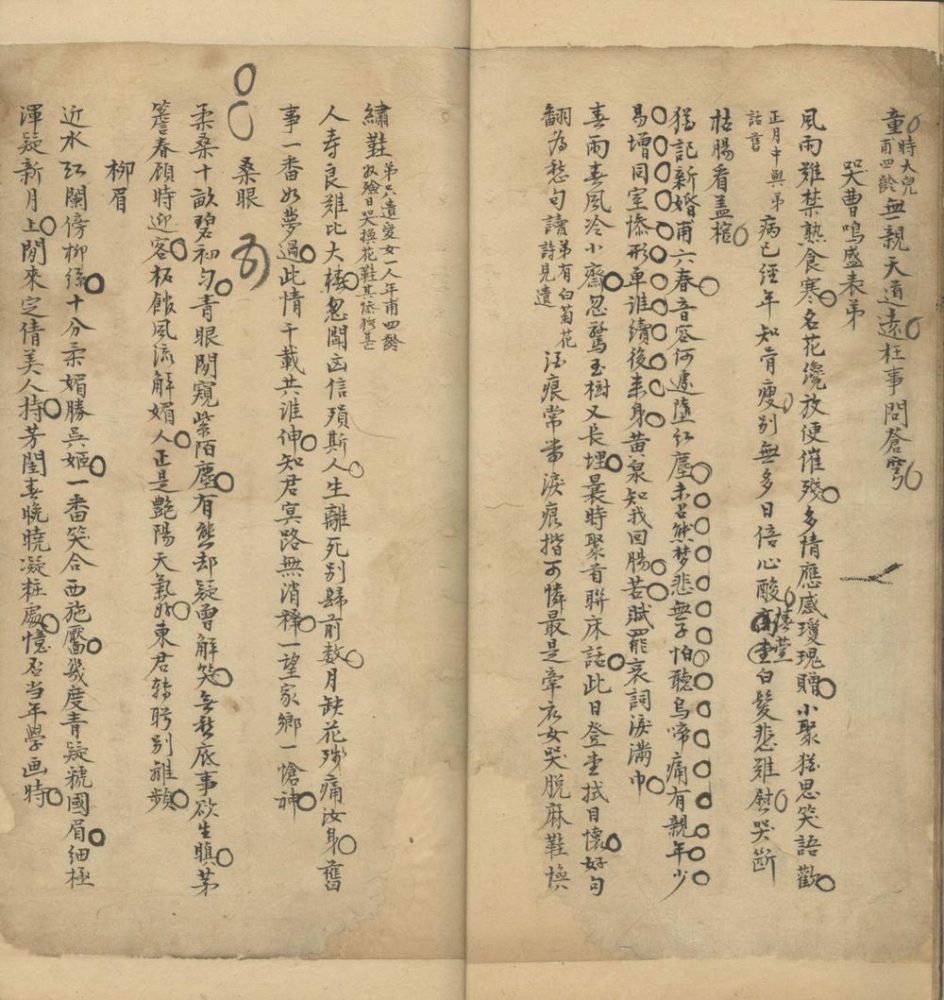 童時大兒甫四齡無親天道遠枉事問蒼穹
哭曹鳴盛表弟
風雨難禁熟食寒名花纔放便催殘多情應感瓊瑰贈小聚猶思笑語歡
正月中與弟話舊病已經年知骨瘦別無多日倍心酸萱堂白髮悲難慰哭斷
枯腸看蓋棺
猶記新婚甫六春音容何遽墮紅塵未占熊夢悲無子怕聽烏啼痛有親年少
易增同室慘形單誰續後來身黃泉知我回腸苦賦罷哀詞淚滿巾
春雨春風冷小齋忽驚玉樹又長埋曩時聚首聯床話此日登堂拭目懷好句
翻為愁句讀弟有白菊花詩見遺酒痕常帶淚痕揩可憐最是牽衣女哭脫麻鞋換
繡鞋弟只遺愛女一人年甫四齡故殮日哭換花鞋其慘極甚
人壽良難比大椿忽聞凶信殞斯人生離死別歸前數月缺花殘痛汝身舊
事一番如夢過此情千載共誰伸知君冥路無消釋一望家鄉一愴神
桑眼
柔桑十畝碧初勻青眼閒窺紫陌塵有態却疑曾解笑無愁底事欲生瞋茅
簷春顧時迎客柘館風流解媚人正是艷陽天氣好東君轉盼別離頻
柳眉
近水紅闌傍柳絲十分柔媚勝吳姬一番笑合西施靨幾度青疑虢國眉細極
渾疑新月上閒來定倩美人持芳閨春晚曉凝粧處憶否当年學画時